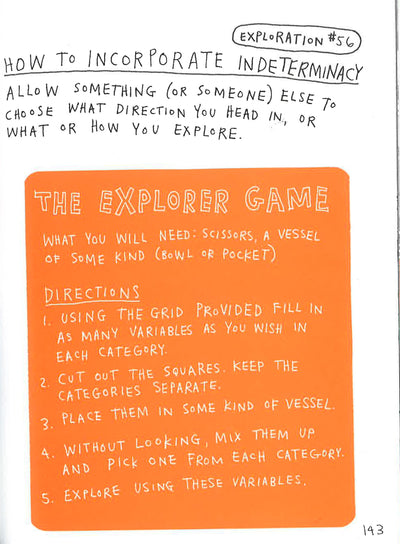 EXPLORATION #56
HOW TO INCORPORATE INDETERMINACY
ALLOW SOMETHING (OR SOMEONE) ELSE TO
CHOOSE WHAT DIRECTION YOU HEAD IN, OR
WHAT OR HOW YOU EXPLORE.
THE EXPLORER GAME
WHAT YOU WILL NEED: SCISSORS, A VESSEL
OF SOME KIND (BOWL OR POCKET)
DIRECTIONS
1. USING THE GRID PROVIDED FILL IN
AS MANY VARIABLES AS YOU WISH IN
EACH CATEGORY.
2. CUT OUT THE SQUARES. KEEP THE
CATEGORIES SEPARATE.
3. PLACE THEM IN SOME KIND OF VESSEL.
4. WITHOUT LOOKING, MIX THEM UP
AND PICK ONE FROM EACH CATEGORY.
5. EXPLORE USING THESE VARIABLES.
143